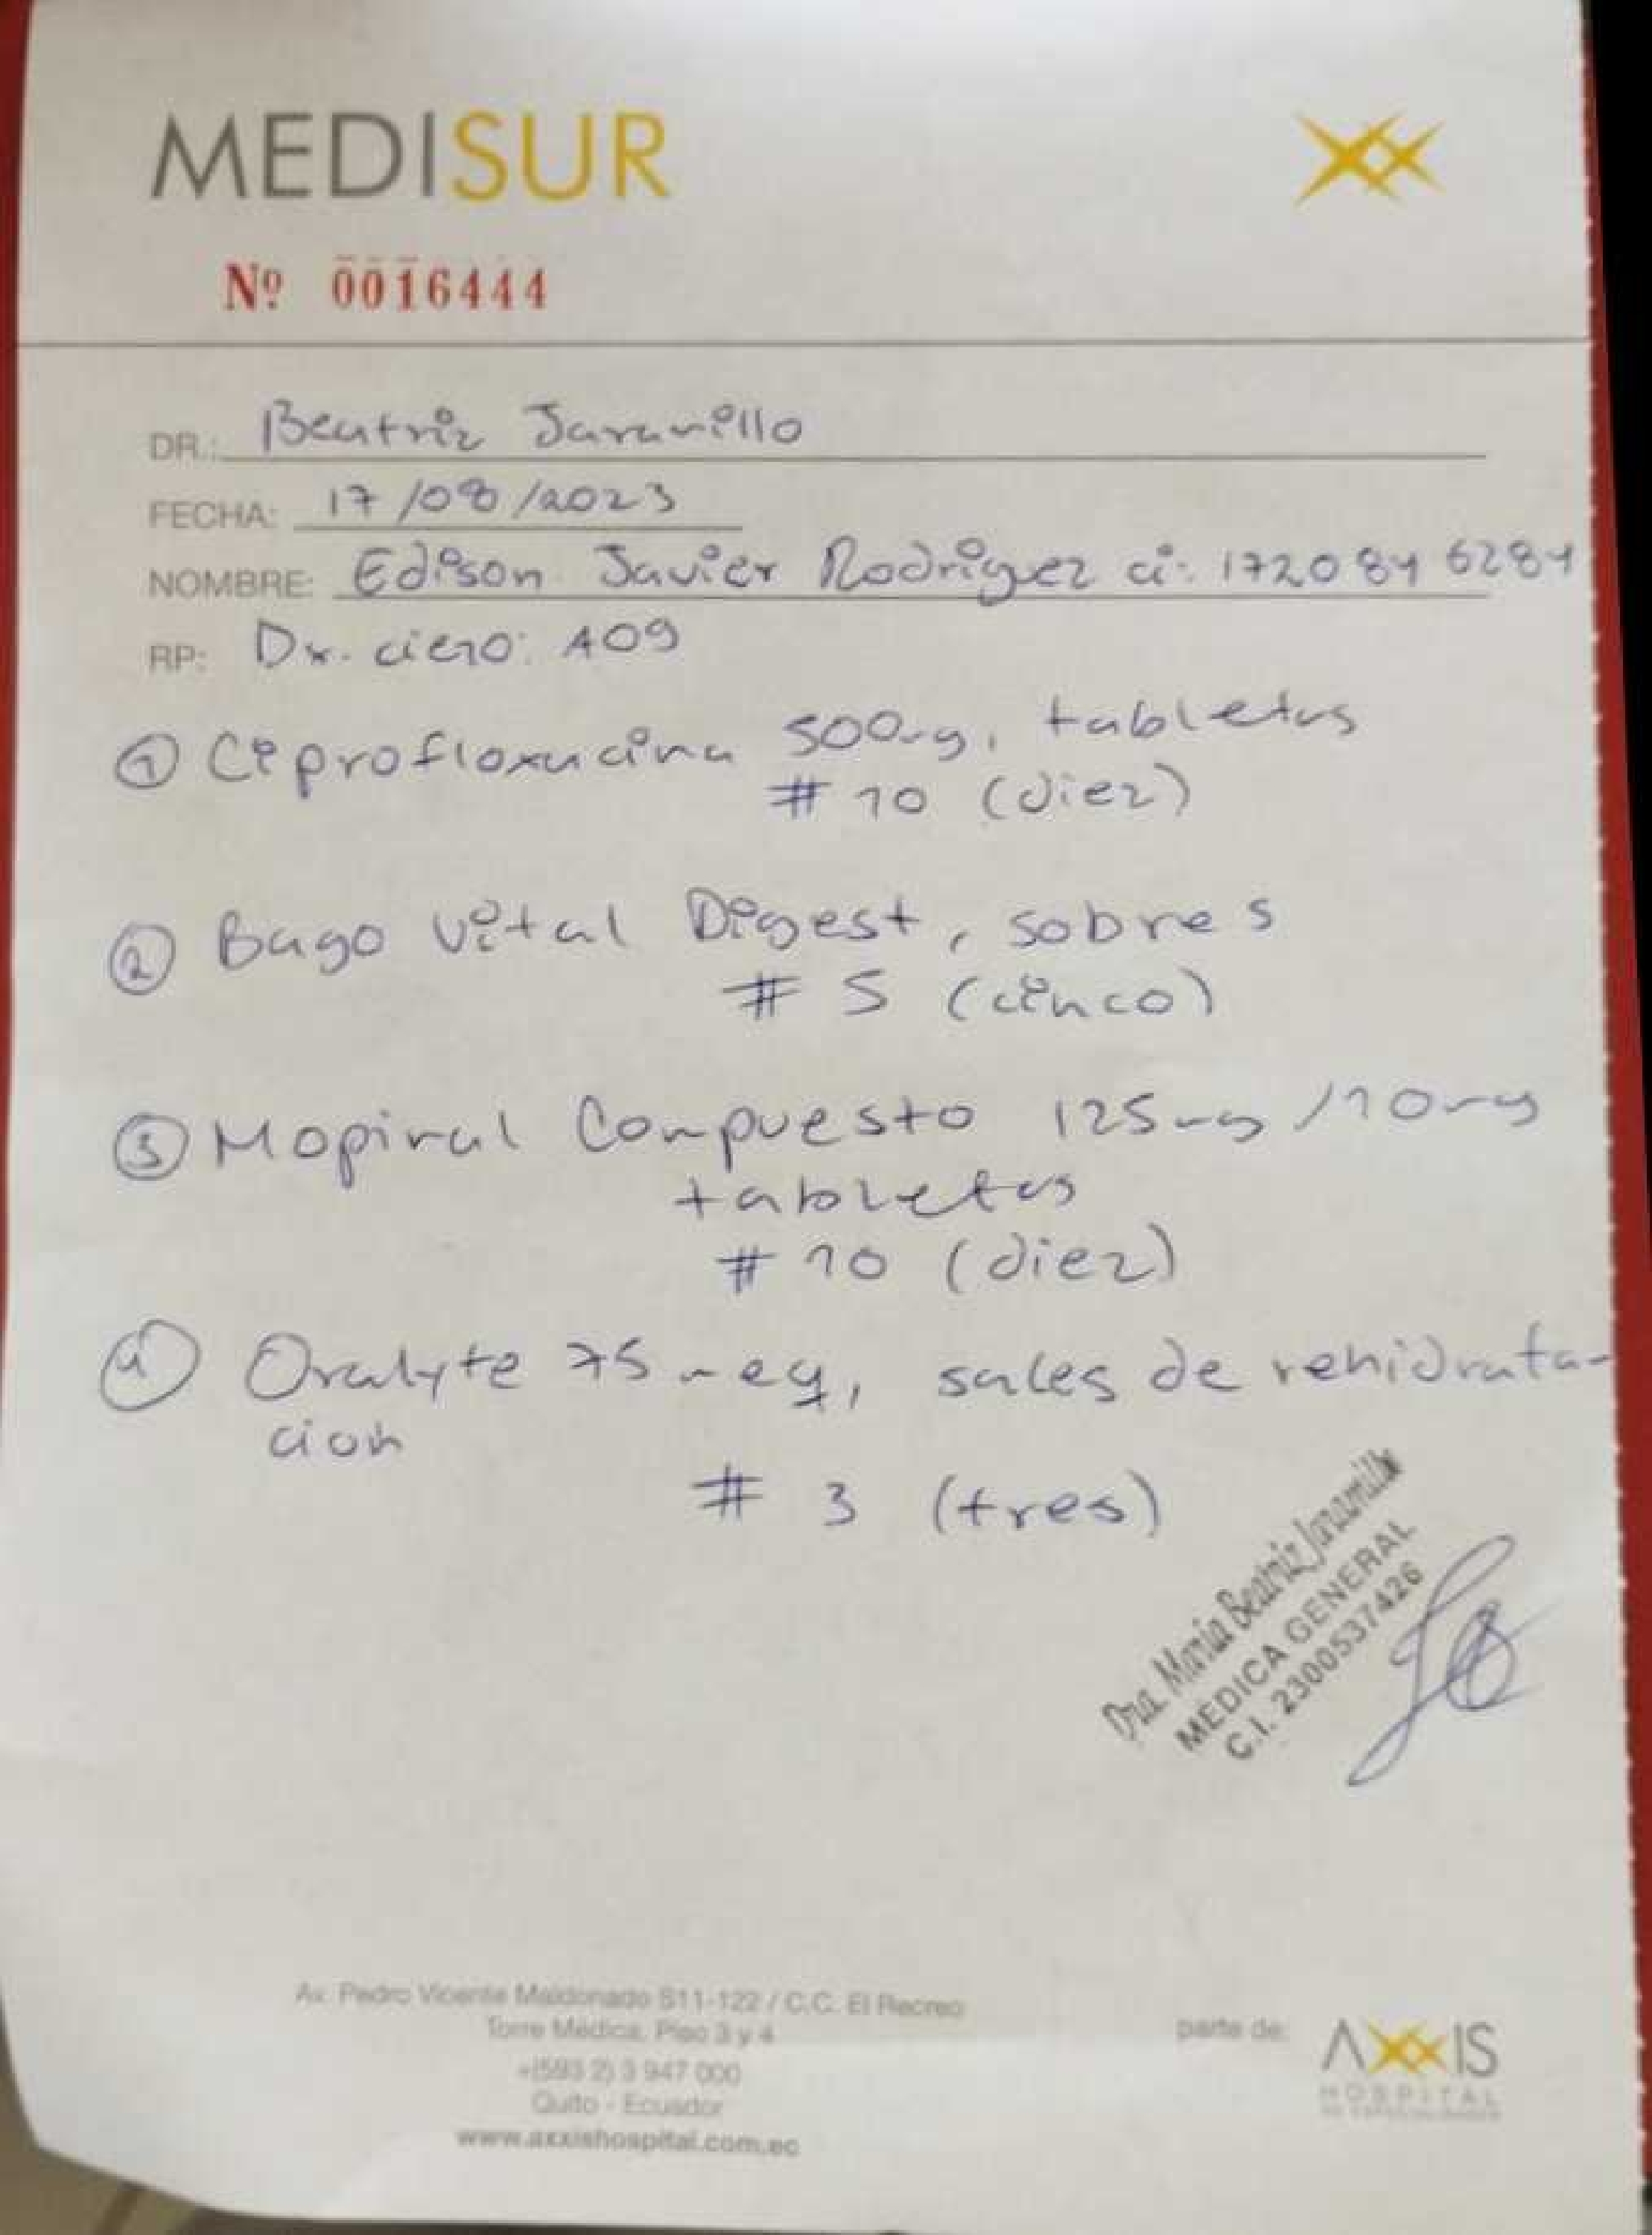 MEDISUR
Nº 0016444
DR.: Beatriz Jaramillo
FECHA: 17/08/2023
NOMBRE: Edison Javier Rodriguez ci: 172084 6284
RP: Dx. cie10: A09
① Ciprofloxacina 500mg, tabletas
# 10 (diez)
② Bago Vital Digest, sobres
# 5 (cinco)
③ Mopiral Compuesto 125mg/10mg
tabletas
# 10 (diez)
④ Oralyte 75meq, sales de rehidrata-
cion
# 3 (tres)
Dra. Maria Beatriz Jaramillo
MEDICA GENERAL
C.I. 2300537426
Av. Pedro Vicente Maldonado S11-122 / C.C. El Recreo
Torre Médica, Piso 3 y 4
+(593 2) 3 947 000
Quito - Ecuador
www.axxishospital.com.ec
parte de:
AXXIS
HOSPITAL
DE ESPECIALIDADES